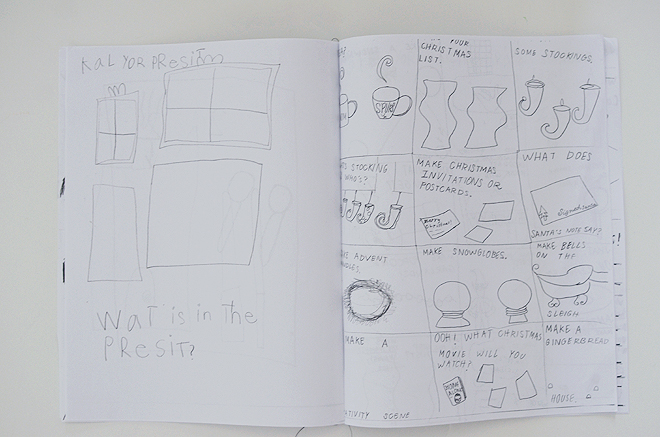 KaL YOR PRESiTm
Wat is in the
PReSIT?
YOUR
CHRISTMAS
LIST.
SOME STOCKINGS.
STOCKING
WHO'S?
MAKE CHRISTMAS
INVITATIONS OR
POSTCARDS.
Merry
Christmas!
WHAT DOES
SANTA'S NOTE SAY?
ADVENT
MAKE SNOWGLOBES.
MAKE BELLS
ON THE
SLEIGH
MAKE A
OOH! WHAT CHRISTMAS
MOVIE WILL YOU
WATCH?
HOME
ALONE
MAKE A
GINGERBREAD
HOUSE.
SCENE